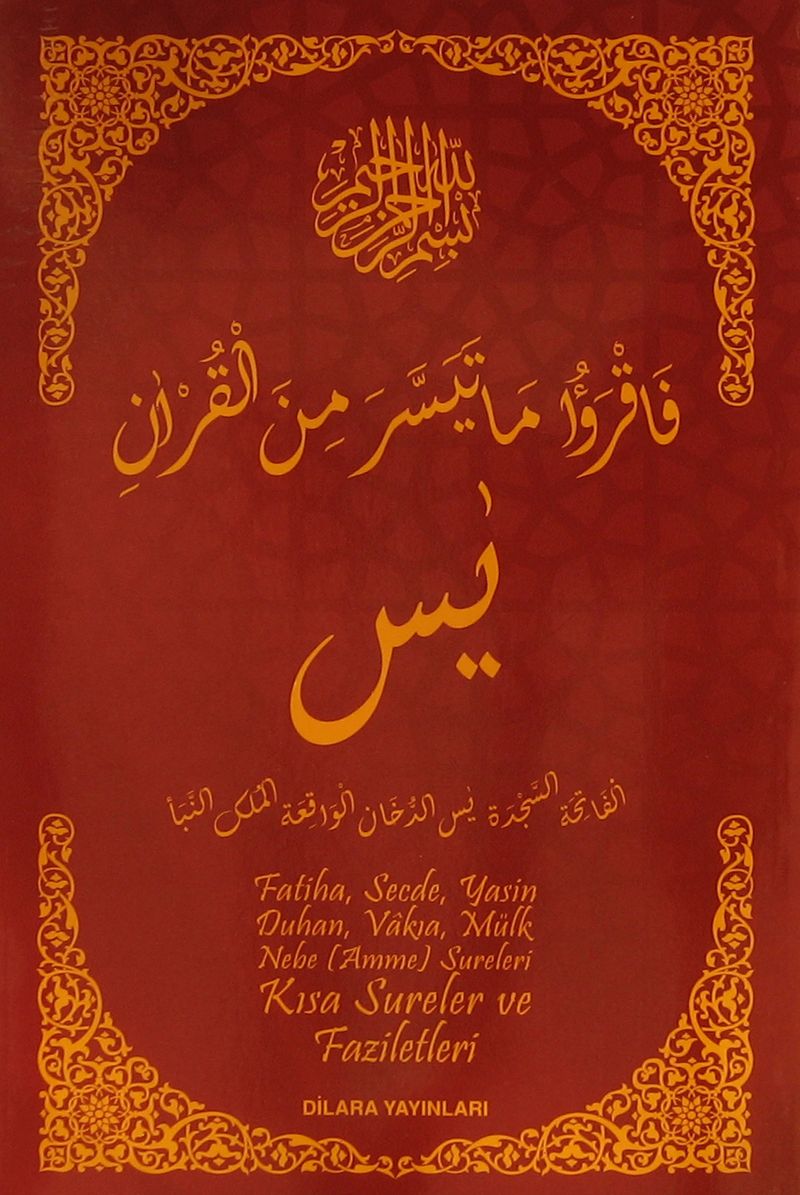 بِسْمِ اللّٰهِ الرَّحْمٰنِ الرَّحِيمِ
فَاقْرَؤُا مَا تَيَسَّرَ مِنَ الْقُرْاٰنِ
يٰس
الْفَاتِحَة السَّجْدَة يٰس الدُّخَان الْوَاقِعَة الْمُلْك النَّبَأ
Fatiha, Secde, Yasin
Duhan, Vâkıa, Mülk
Nebe (Amme) Sureleri
Kısa Sureler ve
Faziletleri
DİLARA YAYINLARI